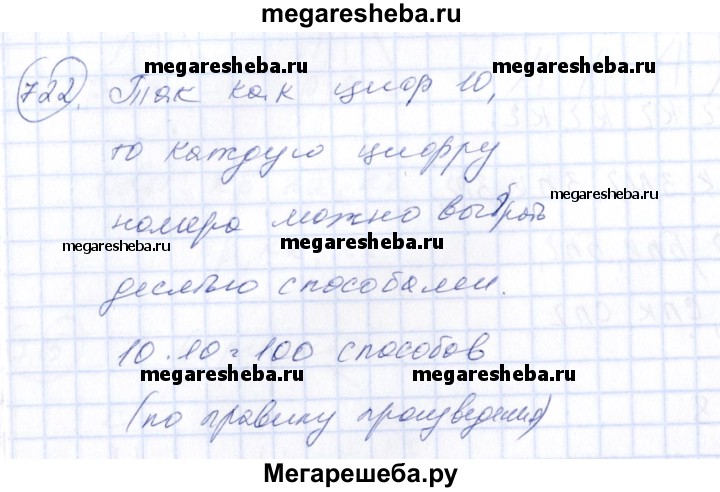 megaresheba.ru
megaresheba.ru megaresheba.ru
722. Так как цифр 10,
то каждую цифру
megaresheba.ru
номера можно выбрать
megaresheba.ru megaresheba.ru megaresheba.ru
десятью способами.
10 · 10 = 100 способов
megaresheba.ru megaresheba.ru
(по правилу произведения)
Мегарешеба.ру